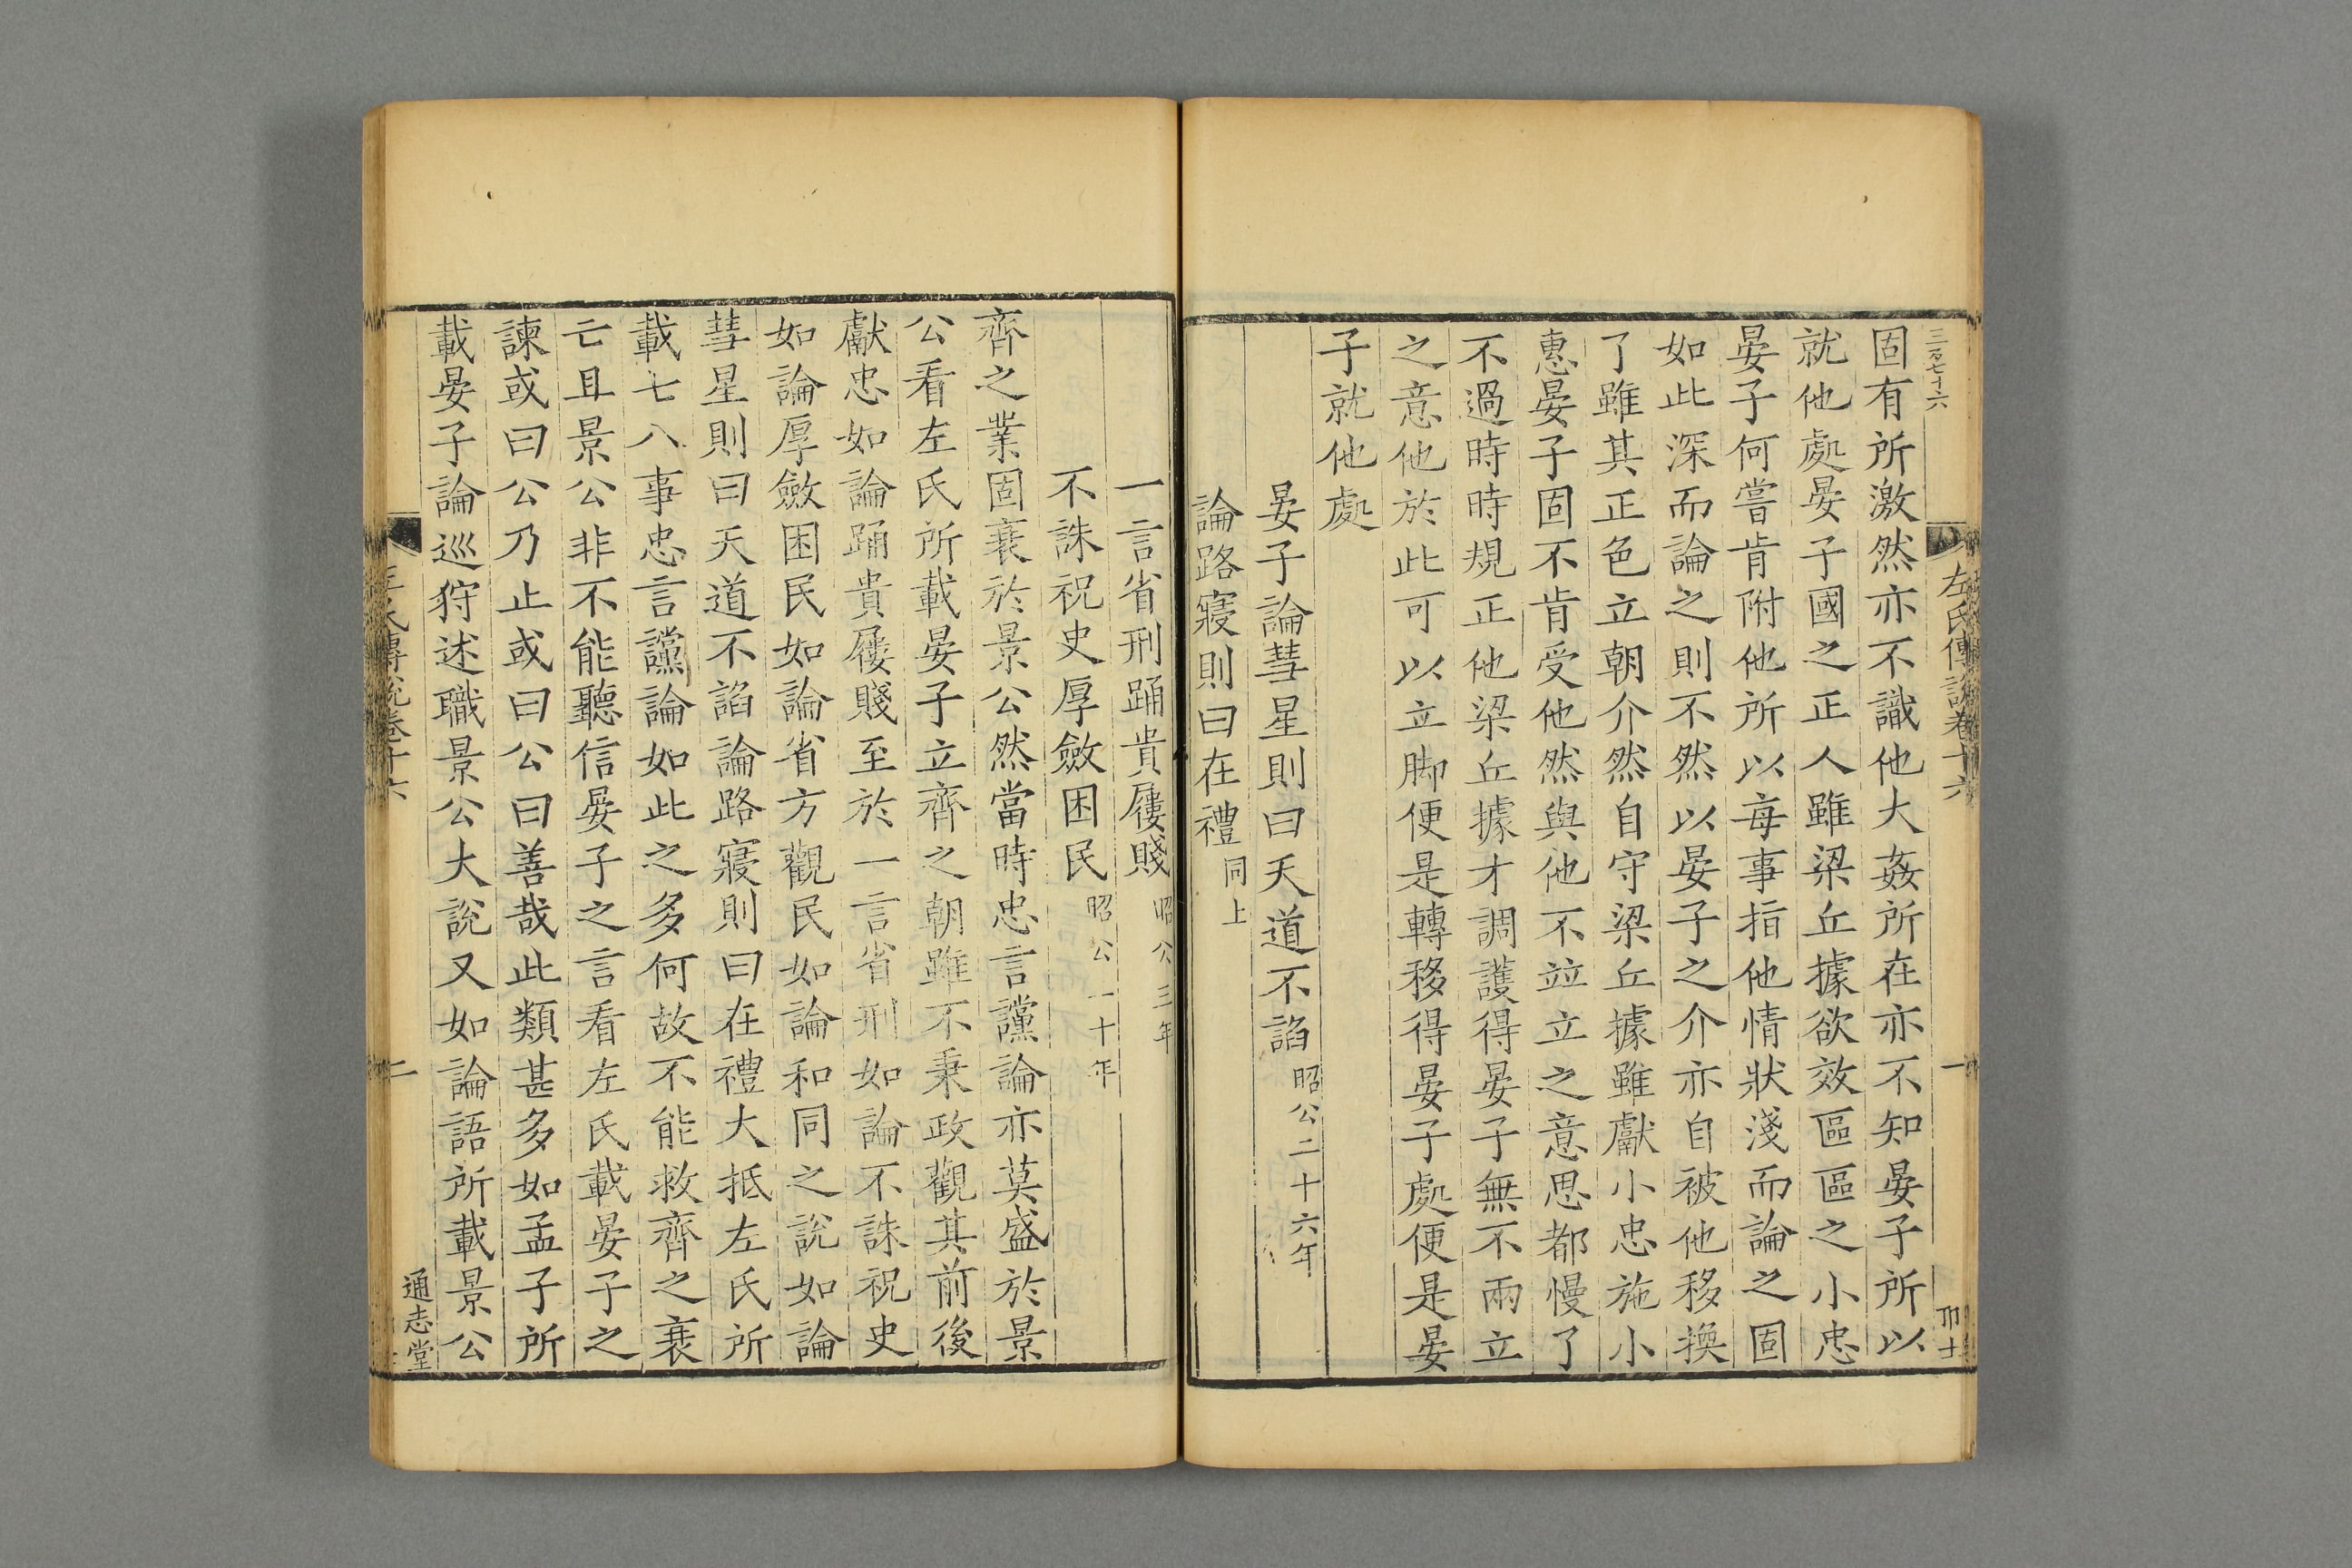 三百七十六
左氏傳說卷十六
一
固有所激然亦不識他大姦所在亦不知晏子所以
就他處晏子國之正人雖梁丘據欲效區區之小忠
晏子何嘗肯附他所以每事指他情狀淺而論之固
如此深而論之則不然以晏子之介亦自被他移換
了雖其正色立朝介然自守梁丘據雖獻小忠施小
惠晏子固不肯受他然與他不竝立之意思都慢了
不過時時規正他梁丘據才調護得晏子無不兩立
之意他於此可以立脚便是轉移得晏子處便是晏
子就他處
晏子論彗星則曰天道不謟昭公二十六年
論路寢則曰在禮同上
一言省刑踊貴屨賤昭公三年
不誅祝史厚斂困民昭公二十年
齊之業固衰於景公然當時忠言讜論亦莫盛於景
公看左氏所載晏子立齊之朝雖不秉政觀其前後
獻忠如論踊貴屨賤至於一言省刑如論不誅祝史
如論厚斂困民如論省方觀民如論和同之說如論
彗星則曰天道不謟論路寢則曰在禮大抵左氏所
載七八事忠言讜論如此之多何故不能救齊之衰
亡且景公非不能聽信晏子之言看左氏載晏子之
諫或曰公乃止或曰公曰善哉此類甚多如孟子所
載晏子論巡狩述職景公大說又如論語所載景公
左氏傳說卷十六
二
通志堂